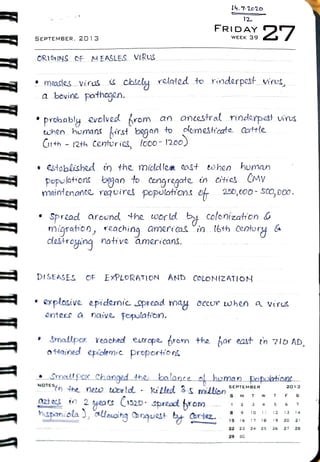 14.7.2020
12.
FRIDAY 27
SEPTEMBER, 2013
WEEK 39
ORIGINS OF MEASLES VIRUS
• measles virus is closely related to rinderpest virus,
a bovine pathogen.
• probably evolved from an ancestral rinderpest virus
when humans first began to domesticate cattle
(11th - 12th centuries, 1000-1200)
• established in the middle east when human
populations began to congregate in cities CMV
maintenance requires populations of 250,000-500,000.
• Spread around the world by colonization &
migration, reaching americas in 16th century &
destroying native americans.
DISEASES OF EXPLORATION AND COLONIZATION
• explosive epidemic spread may occur when a virus
enters a naive population.
• Smallpox reached europe from the far east in 710 AD,
attained epidemic proportions
• Smallpox changed the balance of human populations
NOTES in the new world - killed 3.5 million
aztecs in 2 years (1520- spread from
hispaniola), allowing conquest by Cortez.
SEPTEMBER 2013
S M T W T F S
1 2 3 4 5 6 7
8 9 10 11 12 13 14
15 16 17 18 19 20 21
22 23 24 25 26 27 28
29 30